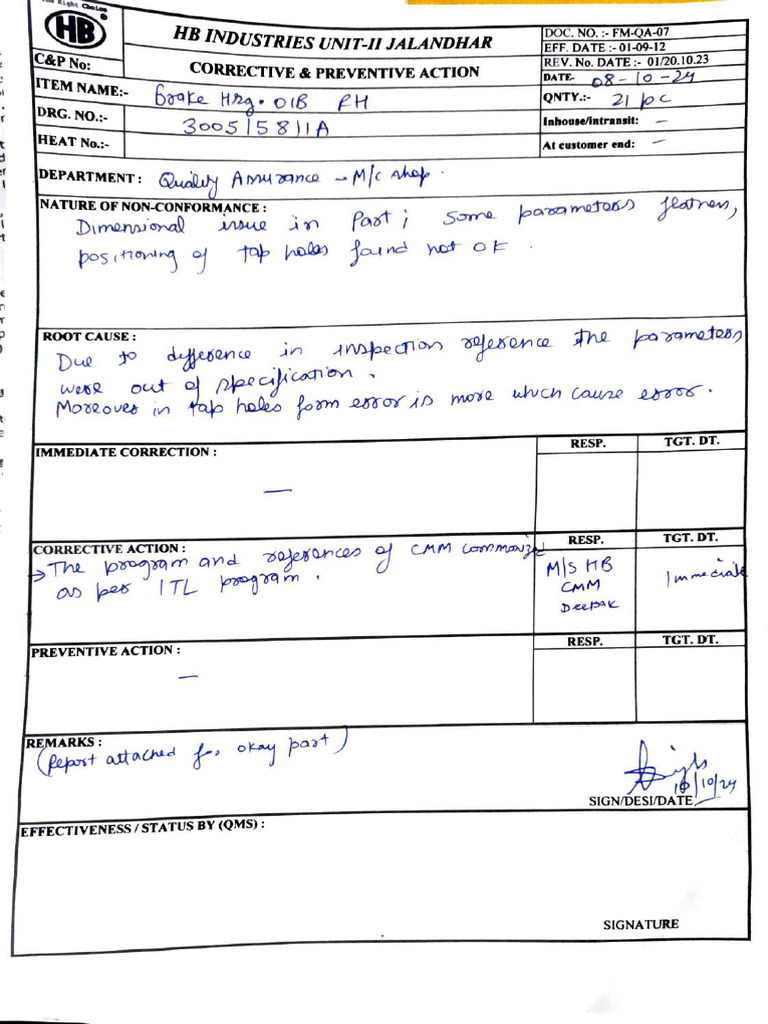 The Right Choice
HB
®
HB INDUSTRIES UNIT-II JALANDHAR
CORRECTIVE & PREVENTIVE ACTION
DOC. NO. :- FM-QA-07
EFF. DATE :- 01-09-12
REV. No. DATE :- 01/20.10.23
DATE- 08-10-24
C&P No:
ITEM NAME:- Brake Hsg. OIB RH
QNTY.:- 21 pc
DRG. NO.:- 300515811A
Inhouse/intransit: -
HEAT No.:-
At customer end: -
DEPARTMENT : Quality Assurance - M/C shop.
NATURE OF NON-CONFORMANCE :
Dimensional issue in Part; Some parameters flatness,
positioning of tap holes found not OK.
ROOT CAUSE :
Due to difference in inspection reference the parameters
were out of specification.
Moreover in tap holes form error is more which cause error.
IMMEDIATE CORRECTION :
RESP.
TGT. DT.
—
CORRECTIVE ACTION :
RESP.
TGT. DT.
→ The program and references of CMM commonized
as per ITL program.
M/S HB
CMM
Deepak
Immediate
PREVENTIVE ACTION :
RESP.
TGT. DT.
—
REMARKS :
(Report attached for okay part)
10/10/24
SIGN/DESI/DATE
EFFECTIVENESS / STATUS BY (QMS) :
SIGNATURE